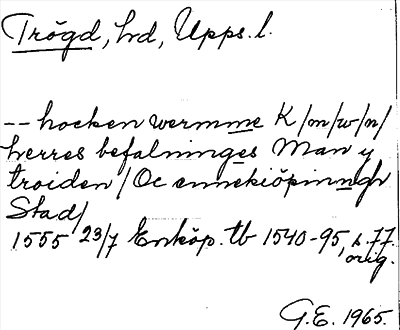 Trögd, hd, Upps.l.
-- hocken wermme K/m/w/n/
herres befalninges Man y
troiden / Oc ennekiöpinngh
Stad/
1555 23/7 Enköp. tb 1540-95, s. 77.
orig.
G.E. 1965.